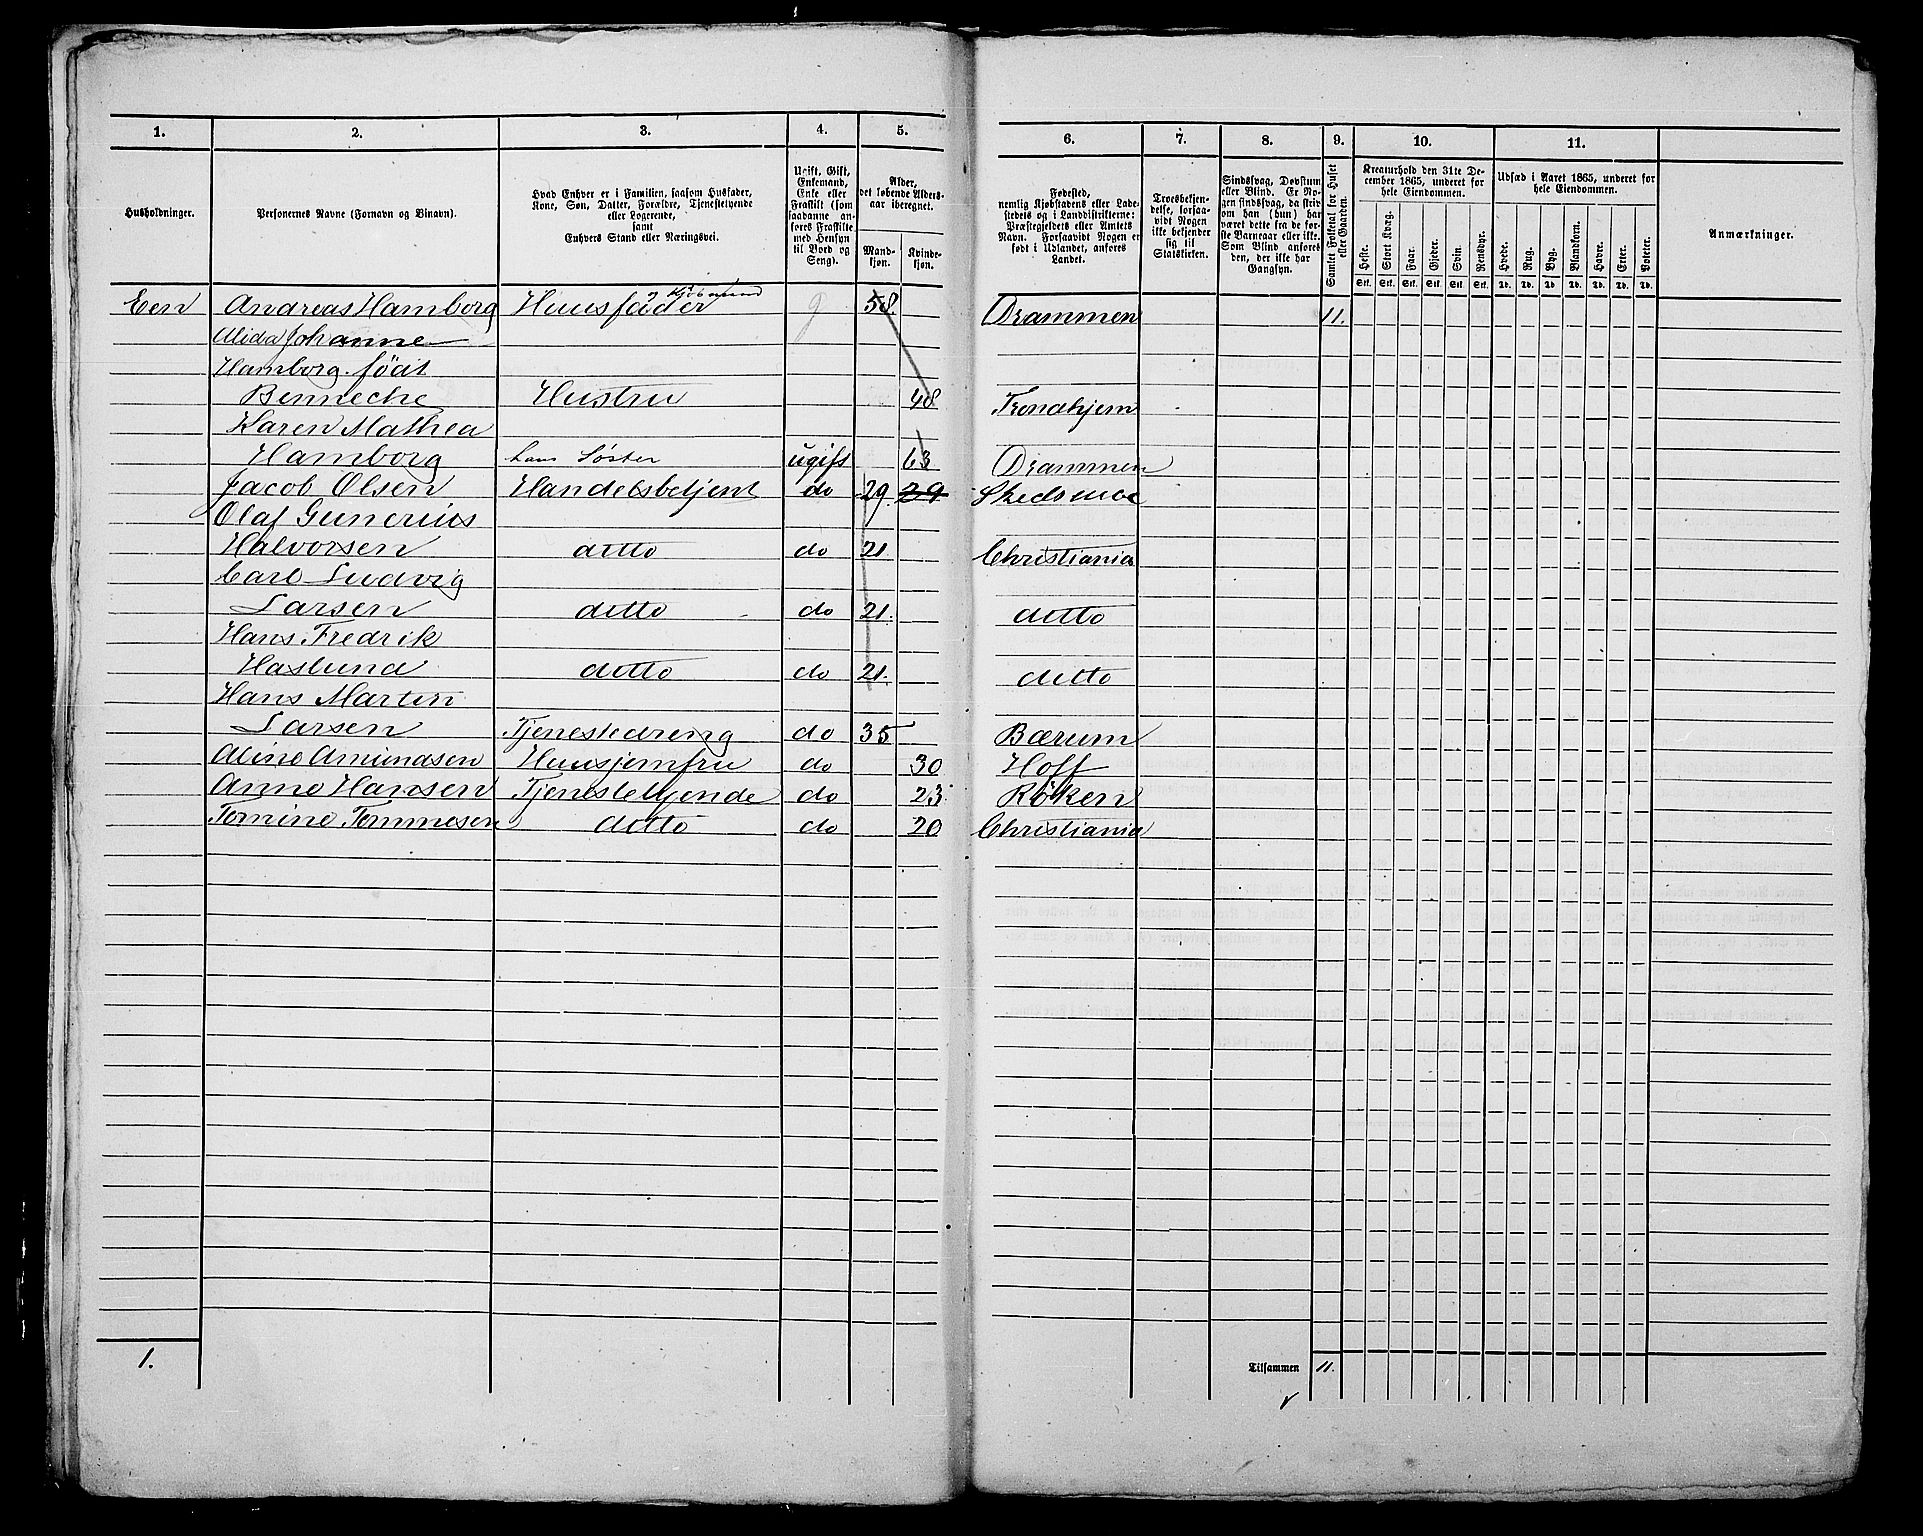 1. 2. 3. 4. 5. 6. 7. 8. 9. 10. 11.
Husholdninger.
Personernes Navne (Fornavn og Binavn).
Hvad Enhver er i Familien, saasom Husfader,
Kone, Søn, Datter, Forældre, Tjenestetyende
eller Logerende,
samt
Enhvers Stand eller Næringsvei.
Ugift, Gift,
Enkemand,
Enke eller
Fraskilt (som
saadanne an-
føres Fraskilte
med Hensyn
til Bord og
Seng).
Alder,
det løbende Alders-
aar iberegnet.
Mand-
kjøn.
Kvinde-
kjøn.
Fødested,
nemlig Kjøbstadens eller Lade-
stedets og i Landdistrikterne:
Præstegjeldets eller Amtets
Navn. Forsaavidt Nogen er
født i Udlandet, anføres
Landet.
Troesbekjen-
delse, forsaa-
vidt Nogen
ikke bekjender
sig til
Statskirken.
Sindssvag, Døvstum
eller Blind. Er No-
gen sindssvag, da skriv
om han (hun) har
været dette fra de før-
ste Barneaar eller ikke.
Som Blind anføres
den, der ikke har
Gangsyn.
Samlet Folketal for Huset
eller Gaarden.
Kreaturhold den 31te De-
cember 1865, underet for
hele Eiendommen.
Heste. Stort Kvæg. Faar. Gjeder. Svin. Rensdyr.
Stk. Stk. Stk. Stk. Stk. Stk.
Udsæd i Aaret 1865, underet for
hele Eiendommen.
Hvede. Rug. Byg. Blandkorn. Havre. Erter. Poteter.
Td. Td. Td. Td. Td. Td. Td.
Anmærkninger.
Een Andreas Hamborg Huusfader og Kjøbmand g 58. Drammen 11.
Alida Johanne
Hamborg født
Benneche Hustru 48 Trondhjem
Karen Mathea
Hamborg hans Søster ugift 63 Drammen
Jacob Olsen Handelsbetjent do 29. 29 Skedsmoe
Olaf Gunerius
Halvorsen ditto do 21 Christiania
Carl Ludvig
Larsen ditto do 21. ditto
Hans Fredrik
Haslund ditto do 21. ditto
Hans Martin
Larsen Tjenestedreng do 35 Bærum
Aline Amundsen Huusjomfru do 30 Hoff
Anne Hansen Tjenestetyende do 23. Røken
Tomine Tommesen ditto do 20 Christiania
1. Tilsammen 11.